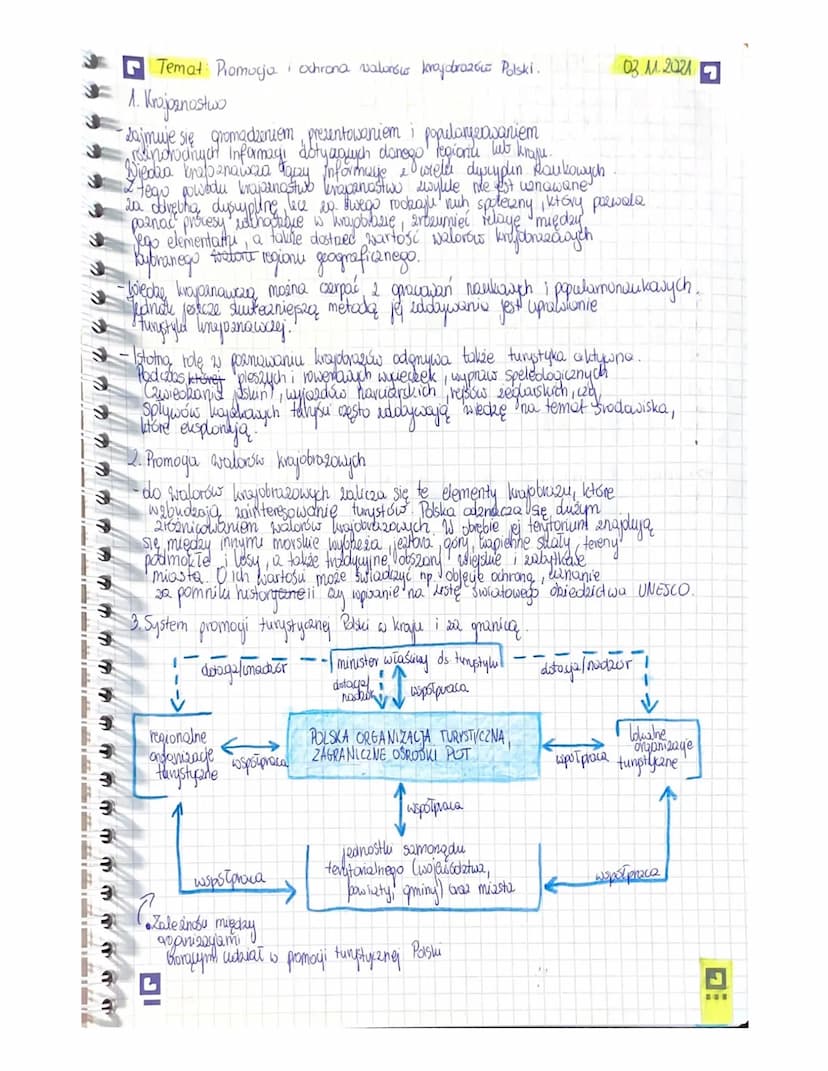 Temat: Promocja i ochrona walorów krajobrazów Polski.
03.11.2021
1. Krajoznastwo
- zajmuje się gromadzeniem, prezentowaniem i popularyzowaniem
różnorodnych informacji dotyczących danego regionu lub kraju.
Wiedza krajoznawcza łączy informacje z wielu dyscyplin naukowych.
Z tego powodu krajoznastwo krajoznastwo zwykle nie jest uznawane
za odrębną dyscyplinę, lecz za swego rodzaju ruch społeczny, który pozwala
poznać procesy zachodzące w krajobrazie, zrozumieć relacje między
jego elementami, a także dostrzec wartość walorów krajobrazowych
wybranego regionu geograficznego.
- Wiedzę krajoznawczą można czerpać z opracowań naukowych i popularnonaukowych.
Jednak jeszcze skuteczniejszą metodą jej zdobywania jest uprawianie
turystyki krajoznawczej.
- Istotną rolę w poznawaniu krajobrazów odgrywa także turystyka aktywna.
Podczas której pieszych i rowerowych wycieczek, wypraw speleologicznych
(zwiedzania jaskiń), wyjazdów narciarskich, rejsów żeglarskich, czy
spływów kajakowych turyści często zdobywają wiedzę na temat środowiska,
które eksplorują.
2. Promocja walorów krajobrazowych
- do walorów krajobrazowych zalicza się te elementy krajobrazu, które
wzbudzają zainteresowanie turystów. Polska odznacza się dużym
zróżnicowaniem walorów krajobrazowych. W obrębie jej terytorium znajdują
się między innymi morskie wybrzeża, jeziora, góry, wapienne skały, tereny
podmokłe i lasy, a także tradycyjne obszary wiejskie i zabytkowe
miasta. O ich wartości może świadczyć np. objęcie ochroną, uznanie
za pomniki historii czy wpisanie na Listę Światowego Dziedzictwa UNESCO.
3. System promocji turystycznej Polski w kraju i za granicą.
dotacja/nadzór
minister właściwy ds turystyki
dotacja/nadzór
dotacja/
nadzór
współpraca
regionalne
organizacje
turystyczne
współpraca
POLSKA ORGANIZACJA TURYSTYCZNA,
ZAGRANICZNE OŚRODKI POT
współpraca
lokalne
organizacje
turystyczne
współpraca
jednostki samorządu
terytorialnego (województwa,
powiaty, gminy) oraz miasta
współpraca
współpraca
Zależności między
organizacjami
biorącymi udział w promocji turystycznej Polski